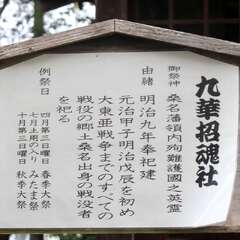 九華招魂社
御祭神
桑名藩領内殉難護國之英靈
由緒
明治九年奉祀建
元治甲子明治戊辰を初め
大東亜戦争までのすべての
戦役の郷土桑名出身の戦没者
を祀る
例祭日
四月第三日曜日 春季大祭
七月土用の入り みたま祭
十月第三日曜日 秋季大祭